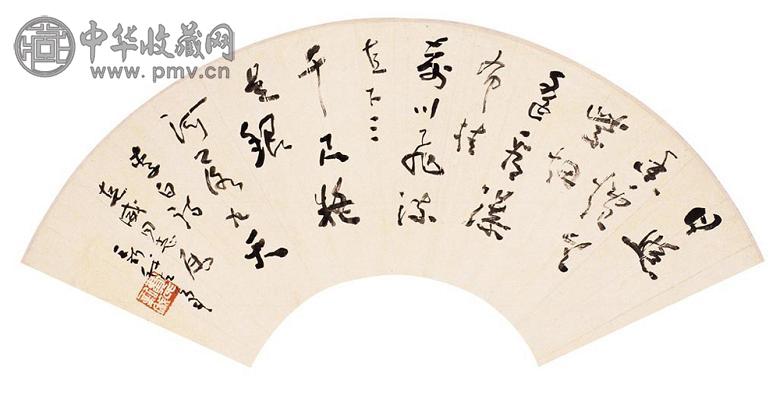 中华收藏网
www.pmv.cn
日照
香爐生
紫烟
遥看瀑
布挂
前川飛流
直下三
千尺疑
是銀
河落九天
李白詩